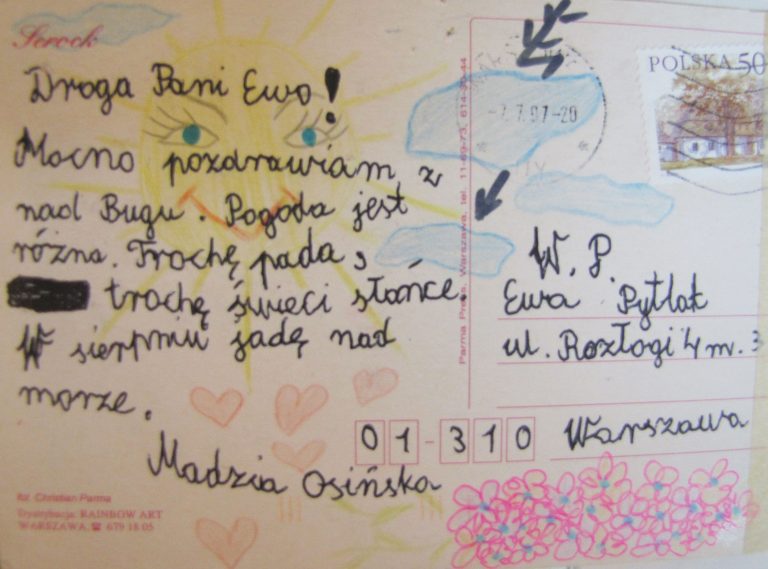 Serock
Droga Pani Ewo!
Mocno pozdrawiam z
nad Bugu. Pogoda jest
różna. Trochę pada,
trochę świeci słońce.
W sierpniu jadę nad
morze.
Madzia Osińska
fot. Christian Parma
Dystrybucja: RAINBOW ART
WARSZAWA, ☎ 679 18 05
Parma Press, Warszawa, tel. 11-69-73, 614-30-44
-7.7.97-20
POLSKA 50
W.P.
Ewa Pytlak
ul. Rozłogi 4 m. 3
01-310 Warszawa